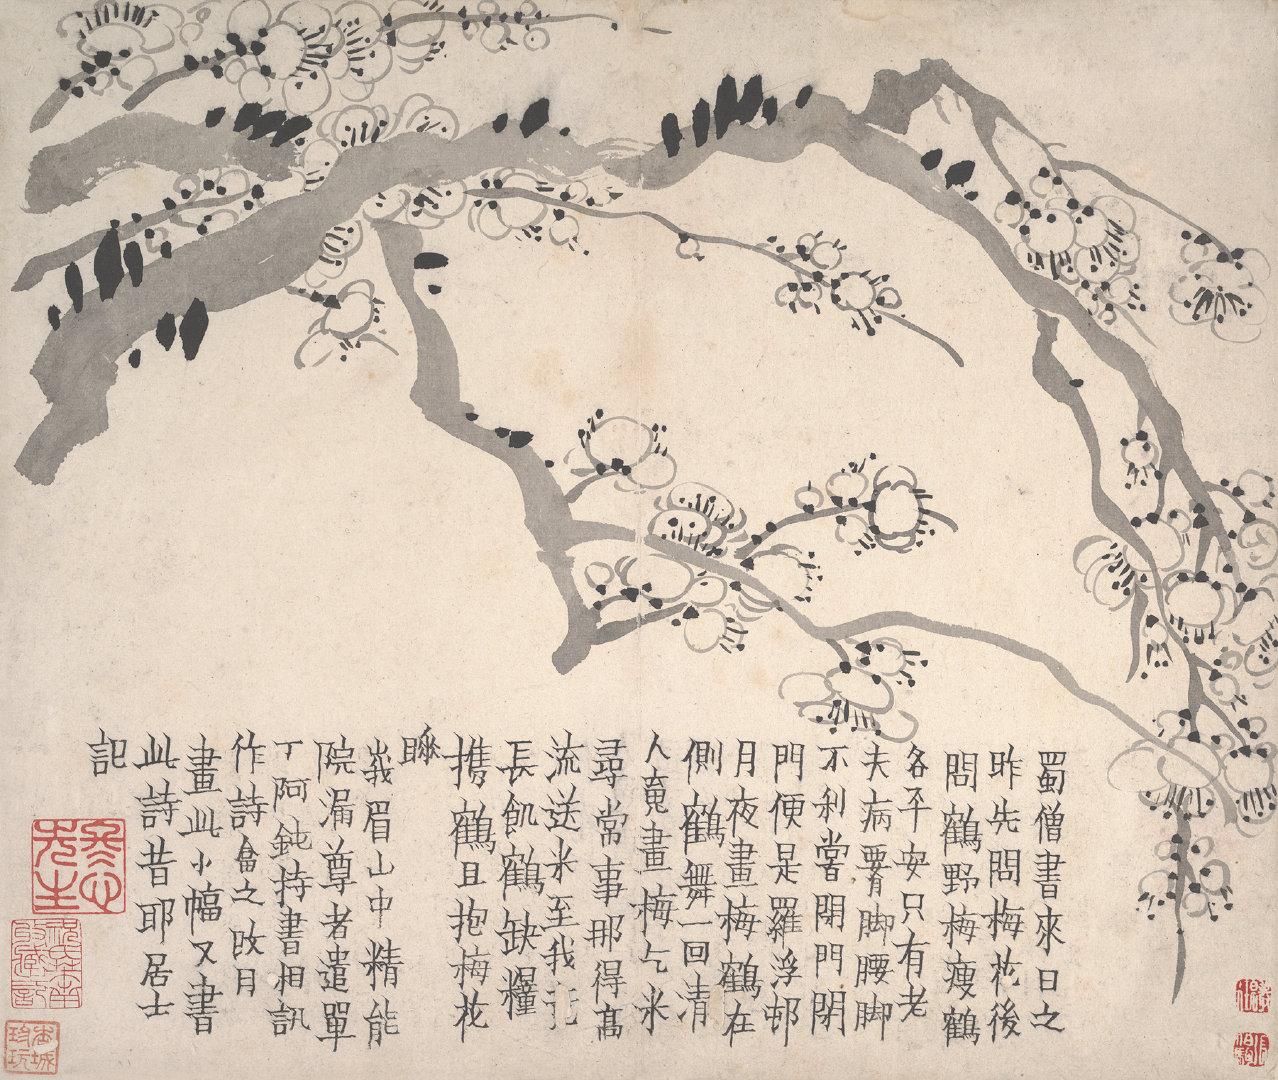 蜀僧書來日之
昨先問梅花後
問鶴野梅瘦鶴
各平安只有老
夫病腰脚腰脚
不利嘗閉門閉
門便是羅浮邨
月夜畫梅鶴在
側鶴舞一回清
人䰟畫梅乞米
尋常事那得高
流送米至我
長飢鶴缺糧
携鶴且抱梅花
睡
峩眉山中精能
院漏尊者遣單
丁阿鈍持書相訊
作詩畣之改月
畫此小幅又書
此詩昔耶居士
記
冬心先生